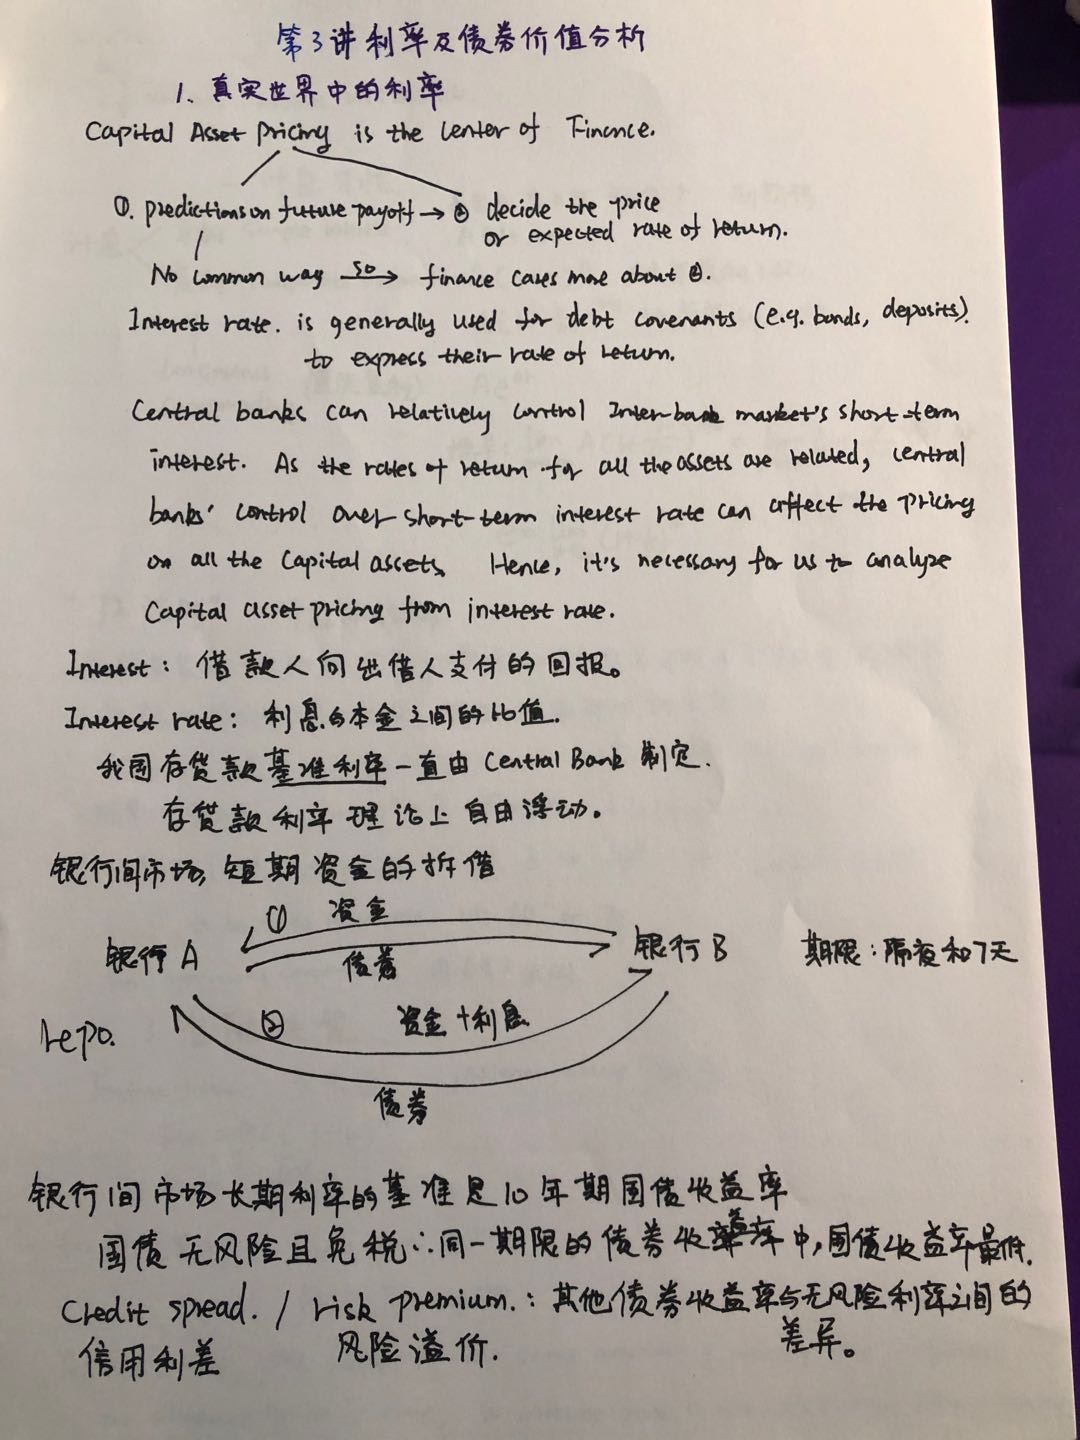 第3讲利率及债券价值分析
1、真实世界中的利率
Capital Asset Pricing is the center of Finance.
①. predictions on future payoff → ② decide the price
or expected rate of return.
No common way so→ finance cares more about ②.
Interest rate. is generally used for debt covenants (e.g. bonds, deposits).
to express their rate of return.
Central banks can relatively control Inter-bank market's short-term
interest. As the rates of return for all the assets are related, central
banks' control over short-term interest rate can affect the pricing
on all the capital assets. Hence, it's necessary for us to analyze
Capital asset pricing from interest rate.
Interest: 借款人向出借人支付的回报。
Interest rate: 利息与本金之间的比值.
我国存贷款基准利率一直由Central Bank制定.
存贷款利率理论上自由浮动。
银行间市场,短期资金的拆借
① 资金
银行A 债券 银行B 期限:隔夜和7天
repo. ② 资金+利息
债券
银行间市场长期利率的基准是10年期国债收益率
国债无风险且免税∴同一期限的债券收益率中,国债收益率最低.
Credit spread. / risk premium.: 其他债券收益率与无风险利率之间的
信用利差 风险溢价. 差异。